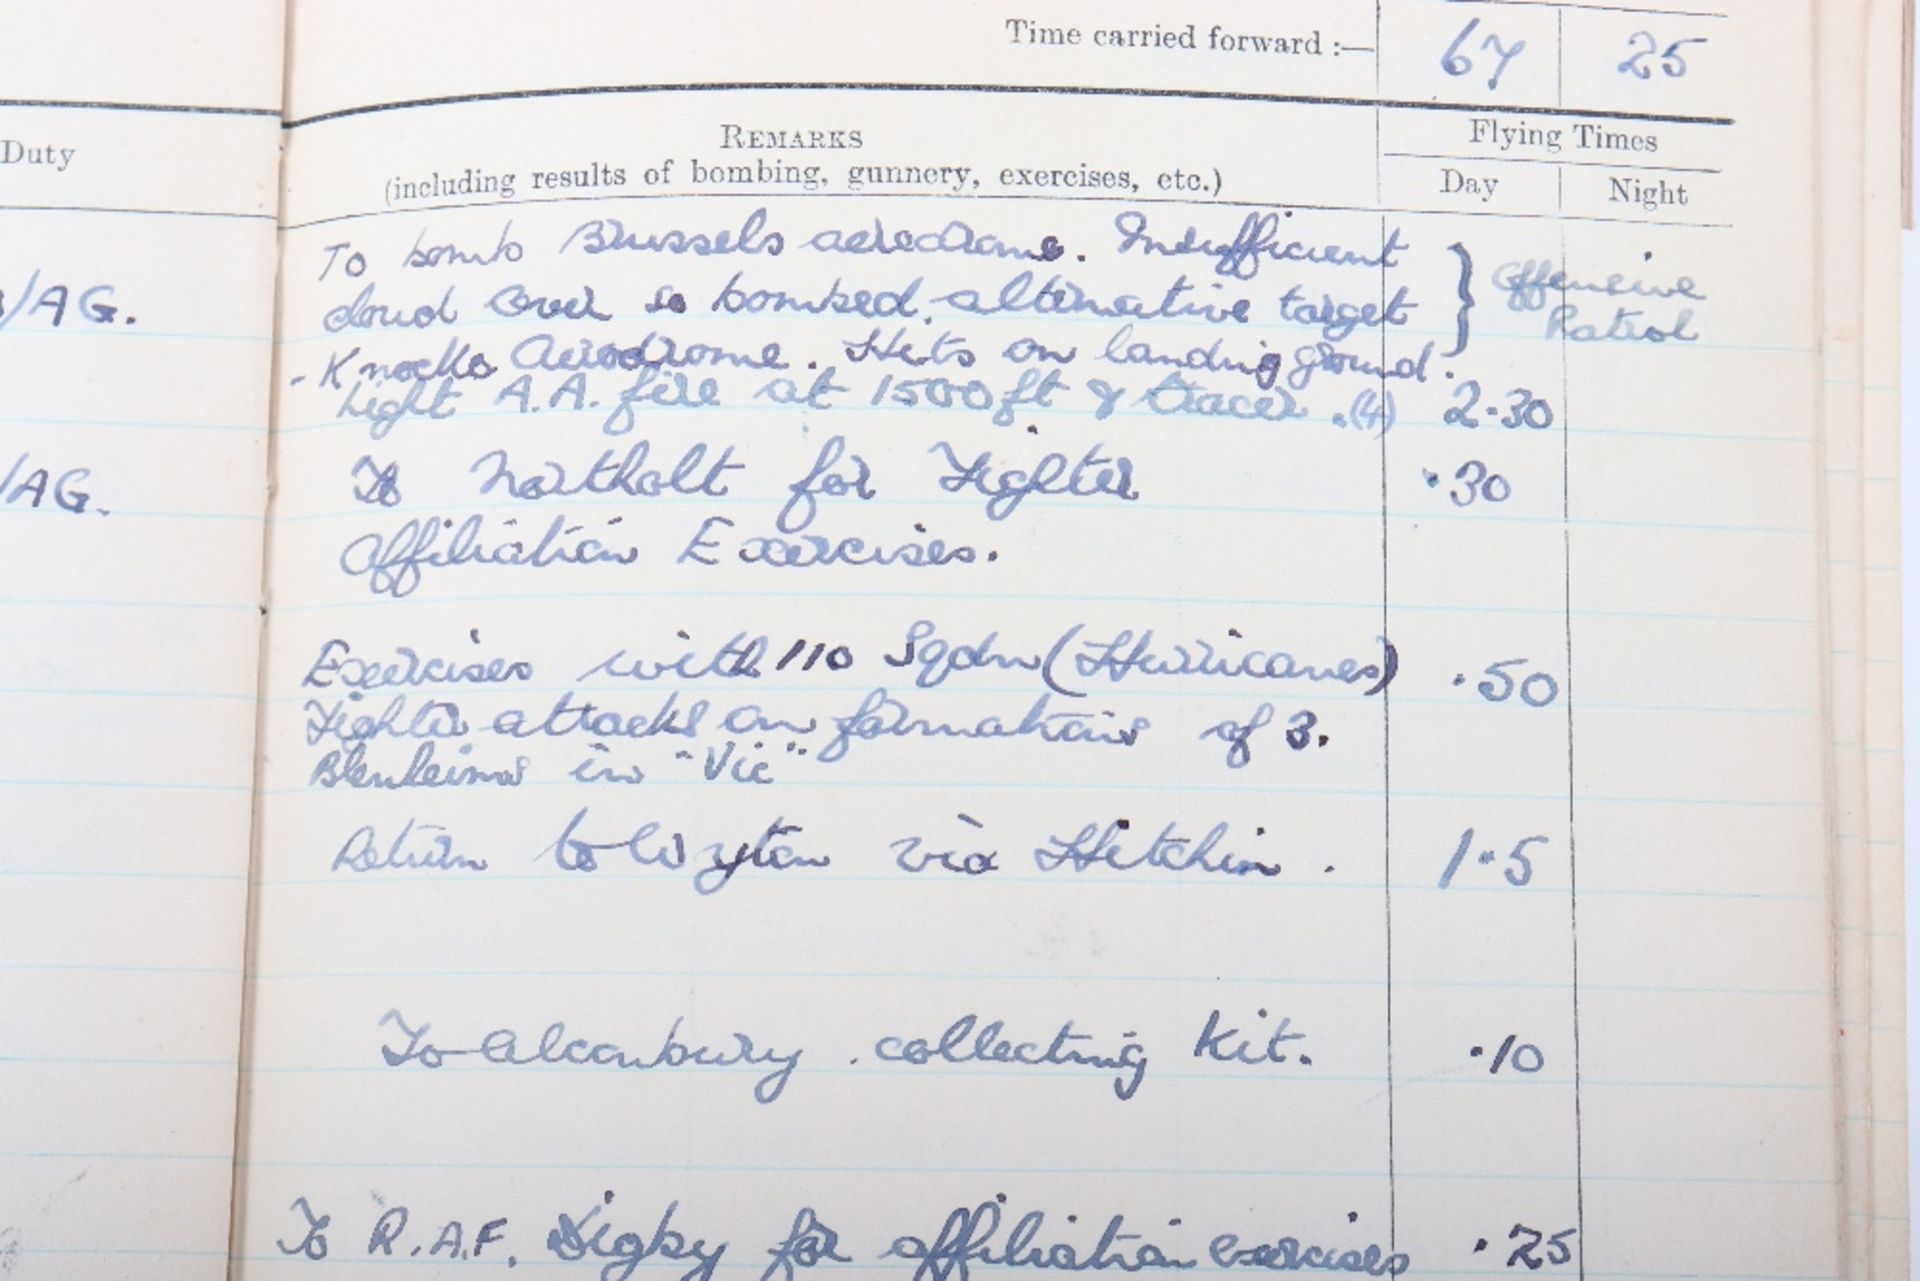 Time carried forward :— 67 25
Duty
REMARKS
(including results of bombing, gunnery, exercises, etc.)
Flying Times
Day Night
/AG.
To bomb Brussels aerodrome. Insufficient
cloud cover so bombed alternative target
- Knocke Aerodrome. Hits on landing ground.
Light A.A. fire at 1500 ft & tracer .(4) 2.30
} Offensive
Patrol
/AG.
To Northolt for Fighter .30
Affiliation Exercises.
Exercises with 110 Sqdn (Hurricanes) .50
Fighter attacks on formations of 3.
Blenheims in "Vic"
Return to Wyton via Hitchin. 1.5
To Alconbury . collecting Kit. .10
To R.A.F. Digby for affiliation exercises .25